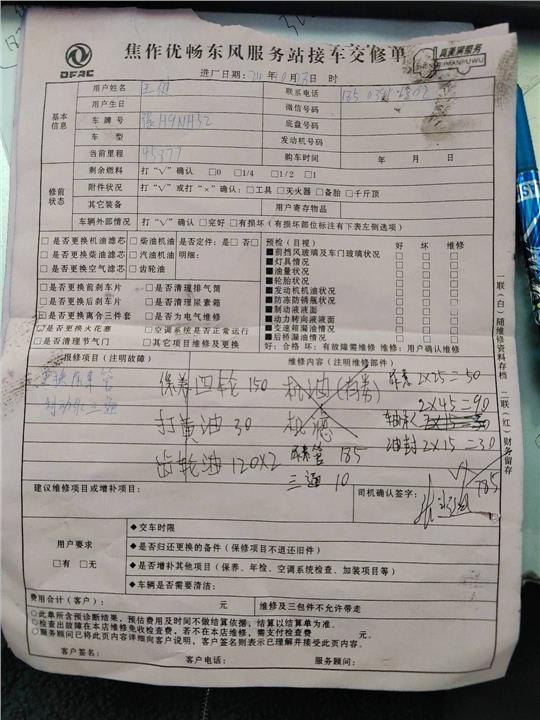 DFAC
焦作优畅东风服务站接车交修单
真满服务
进厂日期: 年 月 日 时
基本信息
用户姓名 联系电话
用户生日 微信号码
车牌号 H9NH52 底盘号码
车型 发动机号码
当前里程 45377 购车时间 年 月 日
修前状态
剩余燃料 打“√”确认 □0 □1/4 □1/2 □1
附件状况 打“√”或打“×”确认: □工具 □灭火器 □备胎 □千斤顶
其它装备 用户寄存物品
车辆外部情况 打“√”确认 □完好 □有损坏 (有损坏部位标注有下表左侧选项)
□是否更换机油滤芯 □柴油机油 □是否定件: 是□ 否□
□是否更换柴油滤芯 □汽油机油 明细:
□是否更换空气滤芯 □齿轮油
□是否更换前刹车片 □是否清理排气筒
□是否更换后刹车片 □是否清理尿素箱
□是否更换离合三件套 □是否为电气维修
□是否更换火花塞 □空调系统是否正常运行
□是否清理节气门 □其它项目维修及更换
预检(目视) 好 坏 维修
■前挡风玻璃及车门玻璃状况
■灯具情况
■油量状况
■轮胎状况
■发动机机油状况
■防冻防锈瓶状况
■制动液液面
■动力转向液液面
■变速箱漏油情况
■后桥漏油情况
好: 合格 坏: 有故障需维修 维修: 用户确认维修
报修项目(注明故障) 维修内容(注明维修部件)
更换
保养四轮 150 机油 2×25=50
2×45=90
打黄油 30 机滤
齿轮油 120×2 185 油封 2×15=30
三通 10
建议维修项目或增补项目: 司机确认签字:
785
用户要求
□有 □无
◆交车时限
◆是否归还更换的备件(保修项目不退还旧件)
◆是否增补其他项目(保养、年检、空调系统检查、加装项目等)
◆车辆是否需要清洁:
费用合计(客户): 元 维修及三包件不允许带走
○此单所含预诊断结果,预估费用及时间不做结算依据,结算以结算单为准。
○检查出故障在本店维修免收检查费,若不在本店维修,需支付检查费 元。
○服务顾问已将此页内容详细向客户说明,客户签名则表示已理解并接受此页内容。
客户签名: 客户电话: 服务顾问:
一联(白)随维修资料存档 二联(红)财务留存